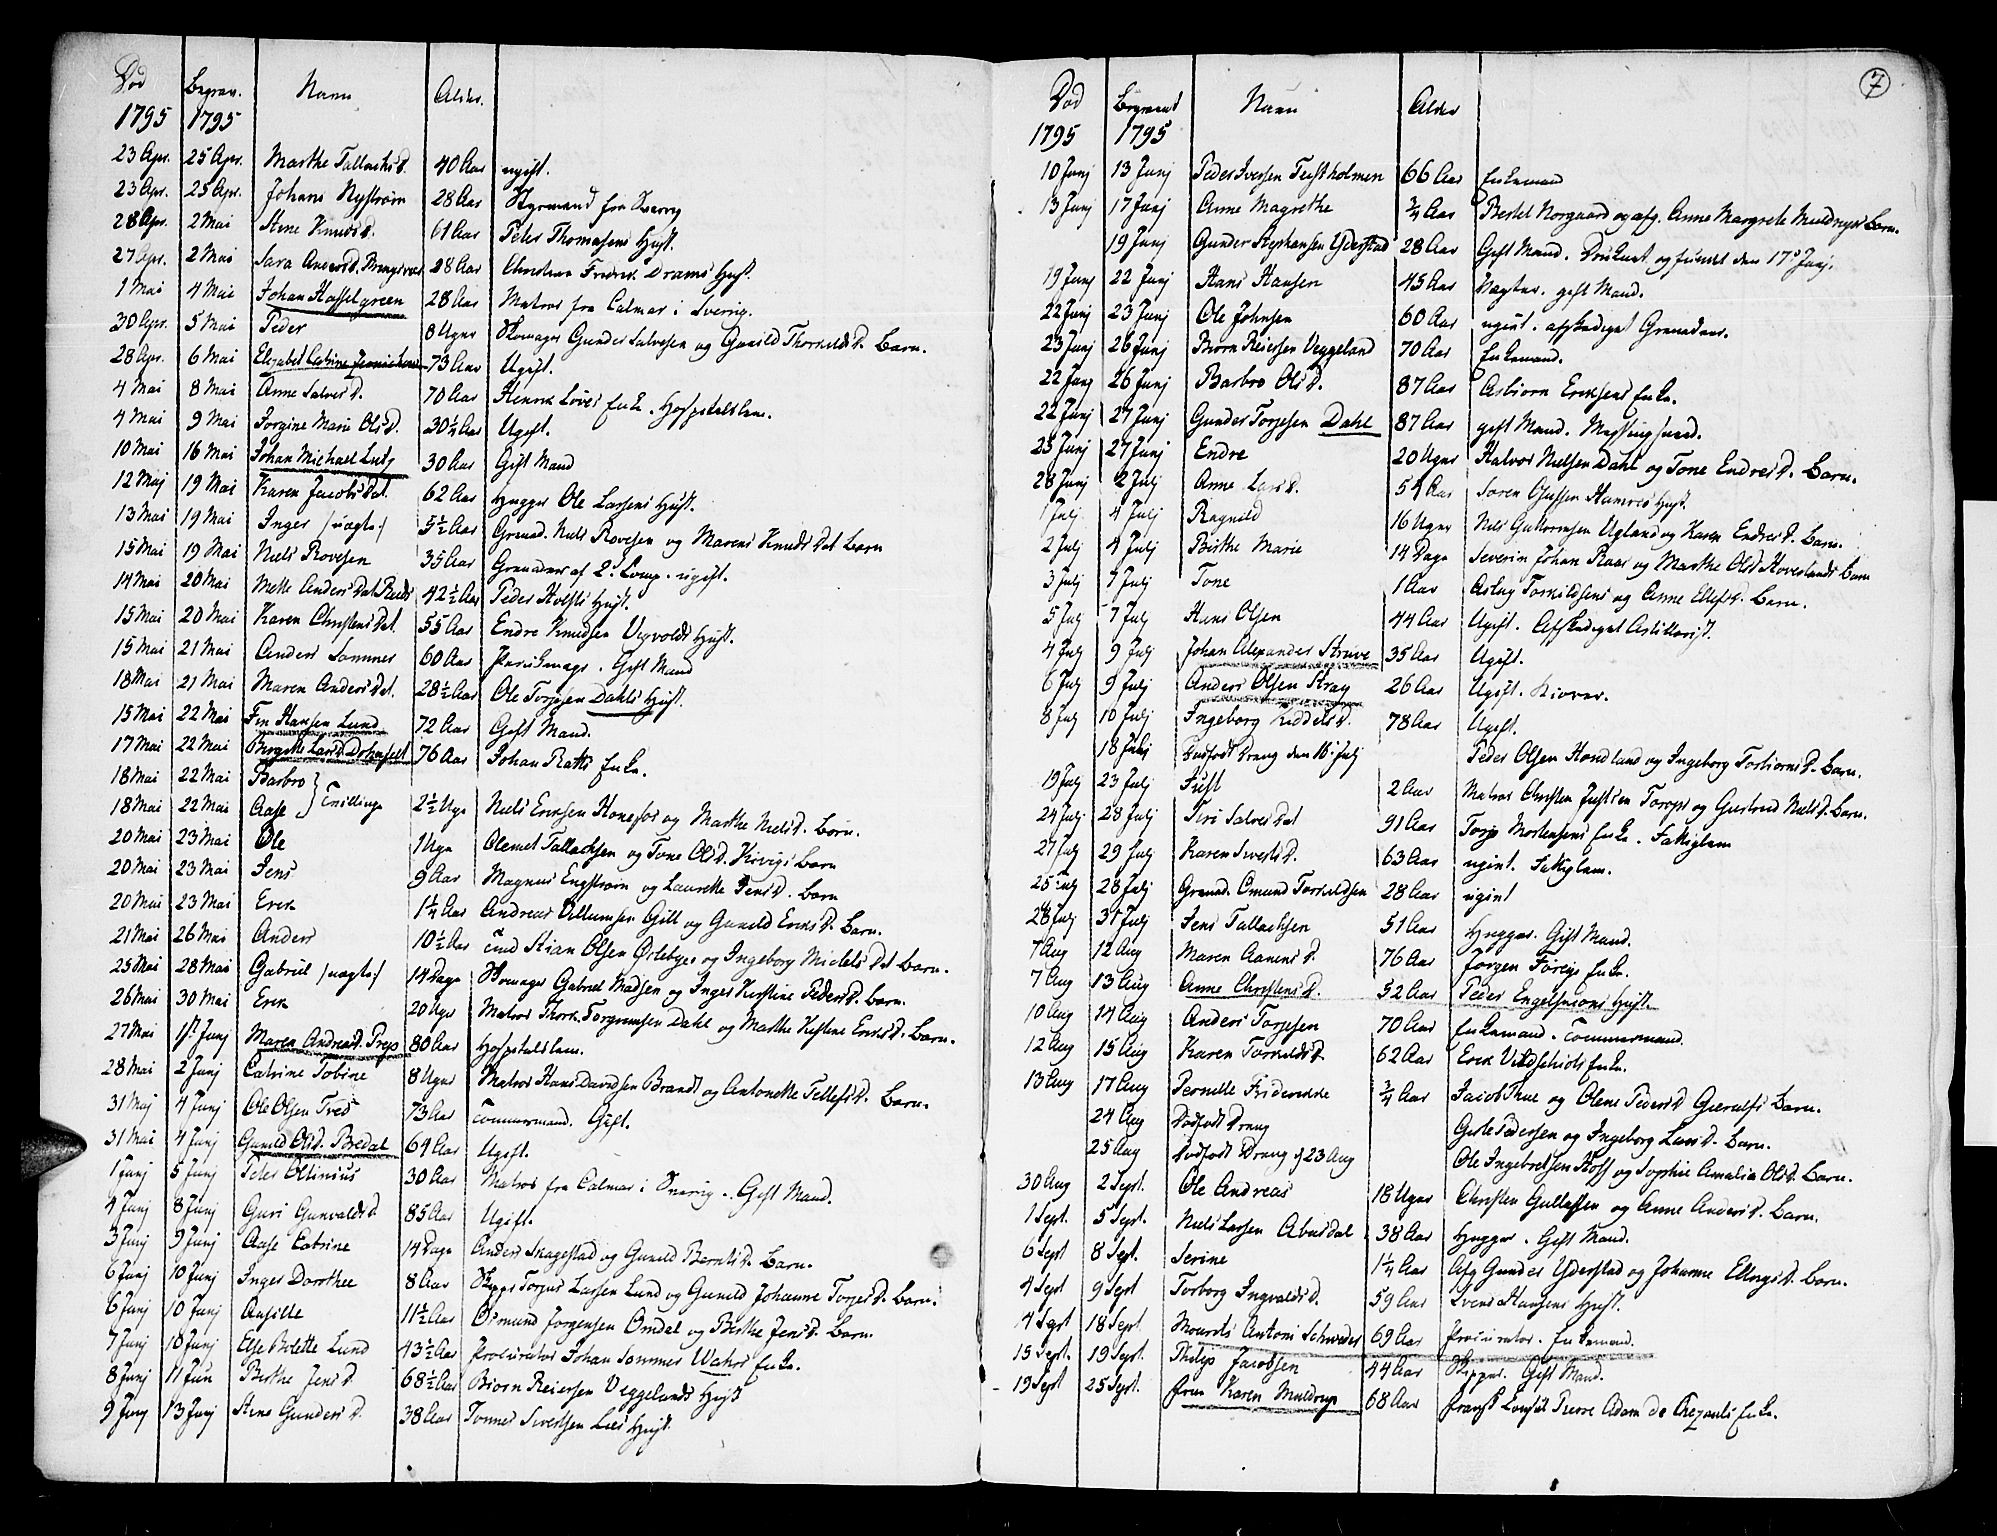 Død Begrav. Navn Alder.
1795 1795
23 Apr. 25 Apr. Marthe Tallachsd. 40 Aar ugift.
23 Apr. 25 Apr. Johans Nystrøm 28 Aar Styrmand fra Sverrig
28 Apr. 2 Mai Ane Knudsd. 61 Aar Peter Thomasens Hust.
27 Apr. 2 Mai Sara Andersd. 28 Aar Christian Fredrik Drams Hust.
1 Mai 4 Mai Johan Hasselgreen 28 Aar Matros fra Calmar i Sverrig.
30 Apr. 5 Mai Peder 8 Uger Skomager Gunder Salvesen og Gunild Thorkildsd. Barn.
28 Apr. 6 Mai Elizabet Catrine 73 Aar Ugift.
4 Mai 8 Mai Anne Salvesd. 70 Aar Henrik Loves Enke. Hospitalslem.
4 Mai 9 Mai Jorgine Marie Olsd. 30½ Aar Ugift.
10 Mai 16 Mai Johan Michael Lutz 30 Aar Gift Mand
12 Maj 19 Mai Karen Jacobsdat. 62 Aar Hugger Ole Larsens Hust.
13 Mai 19 Mai Inger /uægte/ 5½ Aar Grenad. Niels Rovesen og Marens Knudsdat Barn
15 Mai 19 Mai Niels Rovesen 35 Aar Grenader af 2. Comp. ugift.
14 Mai 20 Mai Mette Andersdat 42½ Aar Peder Holsts Hust.
15 Mai 20 Mai Karen Christensdat. 55 Aar Endre Knudsen Vegvolds Hust.
15 Mai 21 Mai Anders Sommer 60 Aar Parikmager. Gift Mand
18 Mai 21 Mai Maren Andersdat. 28½ Aar Ole Torjesen Dahls Hust.
15 Mai 22 Mai Fin Hansen Lund 72 Aar Gift Mand.
17 Mai 22 Mai Birgitte Larsd. 76 Aar Johan Raths Enke.
18 Mai 22 Mai Barbro } Tvillinge
18 Mai 22 Mai Aase 2½ Uge Niels Eriksen Honefos og Marthe Nielsd. Børn.
20 Mai 23 Mai Ole 1 Uge Olemet Tallachsen og Tone Olsd. Kovigs Barn
20 Mai 23 Mai Jens 9 Aar Magnus Engstrøm og Laurette Jensd. Barn
20 Mai 23 Mai Erik 1¼ Aar Andreas Villumsen Gill og Gunild Eriksd. Barn.
21 Mai 26 Mai Anders 10½ Aar Stian Olsen Ørebye og Ingeborg Michelsdat Barn.
25 Mai 28 Mai Gabriel /uægte/ 14 Dage Skomager Gabriel Madsen og Inger Kirstine Pedersd. Barn.
26 Mai 30 Mai Erik 20 Uger Matros Thork. Torgrimsen Dahl og Marthe Kirstine Eriksd. Barn.
27 Mai 1st Junj Maren Andreasd. Preys 80 Aar Hospitalslem.
28 Mai 2 Junj Catrine Tobine 8 Uger Matros Hans Davidsen Brandt og Antonette Tellefsd. Barn.
31 Maj 4 Junj Ole Olsen Tved 73 Aar Tømmermand. Gift.
31 Mai 4 Junj Gunild Olsd. Bredal 64 Aar Ugift.
1 Junj 5 Junj Peter Oltinius 30 Aar Matros fra Calmar i Sverrig. Gift Mand.
4 Junj 8 Junj Guri Gunvaldsd 85 Aar Ugift.
3 Junj 9 Junj Aase Catrine 14 Dage Anders Skagestad og Gunild Berntsd. Barn.
6 Junj 10 Junj Inger Dorothee 8 Aar Skipper Torjus Larsen Lund og Gunild Johanne Torjesd. Barn.
6 Junj 10 Junj Ansille 11½ Aar Osmund Jorgensen Omdal og Birthe Jensd. Barn.
7 Junj 10 Junj Else Bolette Lund 43½ Aar Procurator Johan Sommer Wahrs Enke.
8 Junj 11 Jun Birthe Jensd 68½ Aar Biorn Reiersen Veggelands Hust
9 Junj 13 Junj Ane Gundersd. 38 Aar Tonnes Sivertsen Lies Hust.
7
Død Begravet Navn Alder
1795 1795
10 Junj 13 Junj Peder Iversen Teistholmen 66 Aar Enkemand
13 Junj 17 Junj Anne Magrethe ¾ Aar Bertel Norgaard og afg. Anne Margrete Muldrups Barn.
19 Junj Gunder Stephansen Yderstad 28 Aar Gift Mand. Druknet og fundet den 17d Junj.
19 Junj 22 Junj Hans Hansen 45 Aar Vægter. gift Mand.
22 Junj 23 Junj Ole Johnsen 60 Aar ugivt. afskediget Grenadeer.
23 Junj 26 Junj Biorn Reiersen Veggeland 70 Aar Enkemand.
22 Junj 26 Junj Barbro Olsd. 87 Aar Asbiorn Eriksens Enke.
22 Junj 27 Junj Gunder Torjesen Dahl 87 Aar gift Mand. Messingsmed.
25 Junj 27 Junj Endre 20 Uger Halvor Nielsen Dahl og Tone Endresd. Barn.
28 Junj 2 Julj Anne Larsd. 54 Aar Soren Hamres Hust.
1 Julj 4 Julj Ragnild 16 Uger Niels Guttormsen Ugland og Karen Endresd. Barn.
2 Julj 4 Julj Birthe Marie 14 Dage Severin Johan Raar og Marthe Olsd. Hovelands Barn
3 Julj 7 Julj Tone 1 Aar Aslag Torkildsens og Anne Ellefsd. Barn.
5 Julj 7 Julj Hans Olsen 44 Aar Ugift. Afskediget Artillerist.
4 Julj 9 Julj Johan Alexander Struve 35 Aar Ugift.
6 Julj 9 Julj Anders Olsen Stray 26 Aar Ugift.
8 Julj 10 Julj Ingeborg Kiddelsd. 78 Aar Ugift.
18 Julj Dødfødt Dreng den 16 Julj Peder Olsen Hondland og Ingeborg Torbiornsd. Barn.
19 Julj 23 Julj Just 2 Aar Matros Christen Justsen Torips og Giertrud Nielsd. Barn.
24 Julj 28 Julj Siri Salvesdat 91 Aar Torjs Mortensens Enke. Fattiglem
27 Julj 29 Julj Karen Sivertsd. 63 Aar ugivt. Fattiglem.
25 Julj 28 Julj Grenad. Omund Torkildsen 28 Aar ugivt
28 Julj 31 Julj Jens Tallachsen 51 Aar Hugger. Gift Mand.
7 Aug 12 Aug Maren Aanensd. 76 Aar Jørgen Enke.
7 Aug 13 Aug Anne Christensd. 52 Aar Peder Engelsmons Hust.
10 Aug 14 Aug Anders Torjesen 70 Aar Enkemand. Tømmermand.
12 Aug 15 Aug Karen Torkildsd. 62 Aar Erik Enke.
13 Aug 17 Aug Pernille Friderikke ¾ Aar Jacob Thue og Olene Pedersd Gierulfs Barn.
24 Aug Dødfødt Dreng Giste Pedersen og Ingeborg Larsd. Barn.
25 Aug Dødfødt Dreng d 23 Aug Ole Ingebretsen Hoff og Sophie Amalia Olsd. Barn.
30 Aug 2 Sept. Ole Andreas 18 Uger Christen Gullassen og Anne Andersd. Barn.
1 Sept. 5 Sept. Niels Larsen Abusdal 38 Aar Hugger. Gift Mand.
6 Sept 8 Sept. Serine 1¼ Aar Afg Gunder Ydersstad og Johanne Ellingsd. Barn.
4 Sept 9 Sept Torborg Ingvaldsd. 59 Aar Svens Hansens Hust.
14 Sept 18 Sept Mourits Antoni Schweder 69 Aar Procurator. Enkemand.
15 Sept. 19 Sept. Philip Jacobsen 44 Aar Skipper. Gift Mand.
19 Sept 25 Sept. Frue Karen Muldrup 68 Aar fransk Consul Pierre Adam de Enke.